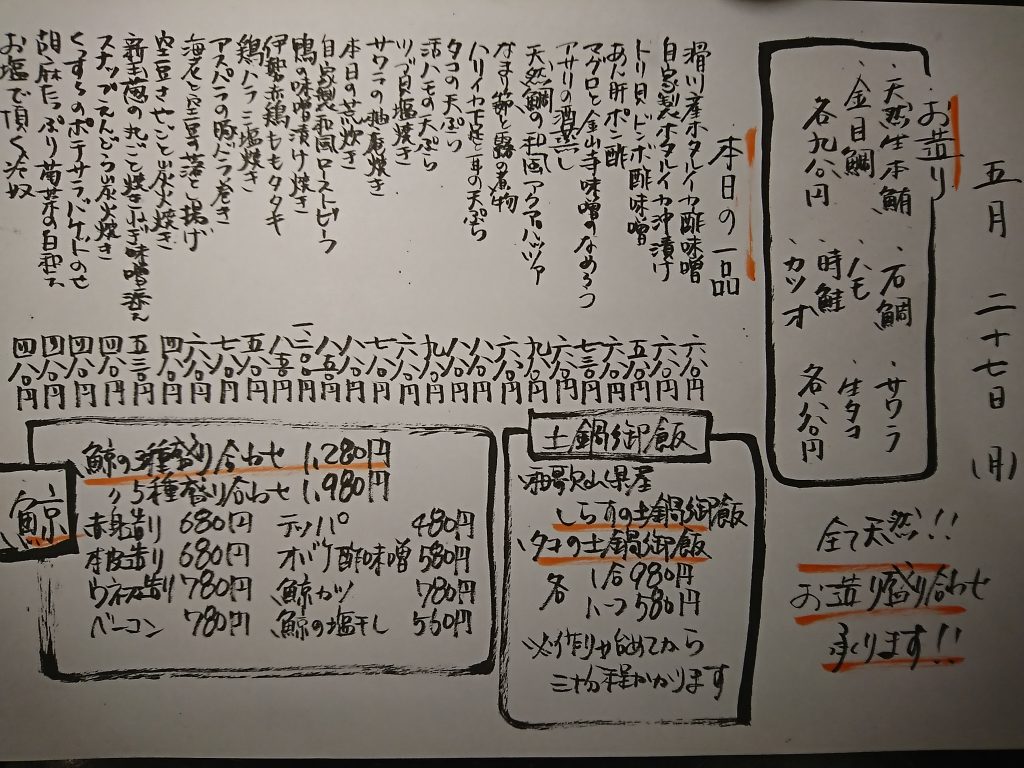 五月 二十七日 (月)
お造り
・天然生本鮪 ・石鯛 ・サワラ
・金目鯛 ・ハモ ・生タコ
・時鮭 ・カツオ
各九八〇円 各八八〇円
全て天然!!
お造り盛り合わせ
承ります!!
本日の一品
滑川産ホタルイカ酢味噌 六八〇円
自家製ホタルイカ沖漬け 六八〇円
トリ貝ドンボ酢味噌
あん肝ポン酢
マグロと金山寺味噌のなめろう 七三〇円
アサリの酒蒸し 六八〇円
天然鯛の和風アクアパッツァ 九八〇円
なまり節と蕗の煮物 六八〇円
ハリイカ下足と耳の天ぷら
タコの天ぷら 八八〇円
活ハモの天ぷら 九八〇円
ツブ貝塩焼き 六八〇円
サワラの柚庵焼き 七八〇円
本日の荒炊き 八八〇円
自家製和風ローストビーフ
鴨の味噌漬け焼き
伊勢赤鶏ももタタキ
鶏ハラミ塩焼き 五八〇円
アスパラの豚バラ巻き 七八〇円
海老と空豆の落とし揚げ 六八〇円
空豆さやごと炭火焼き 四八〇円
新玉葱の丸ごと焼きねぎ味噌添え 五三〇円
スナップえんどう炭火焼き 四八〇円
くずし的ポテサラバケットのせ 四八〇円
胡麻たっぷり菊菜の白和え 四八〇円
お塩で頂く冷奴 四八〇円
土鍋御飯
和歌山県産
しらすの土鍋御飯
タコの土鍋御飯
各 1合 980円
1/2 580円
※作り始めてから
三十分程かかります
鯨
鯨の3種盛り合わせ 1,280円
〃 5種盛り合わせ 1,980円
赤身造り 680円 テッパ 480円
本皮造り 680円 オバケ酢味噌 580円
ウネス造り 780円 鯨カツ 780円
ベーコン 780円 鯨の塩干し 550円